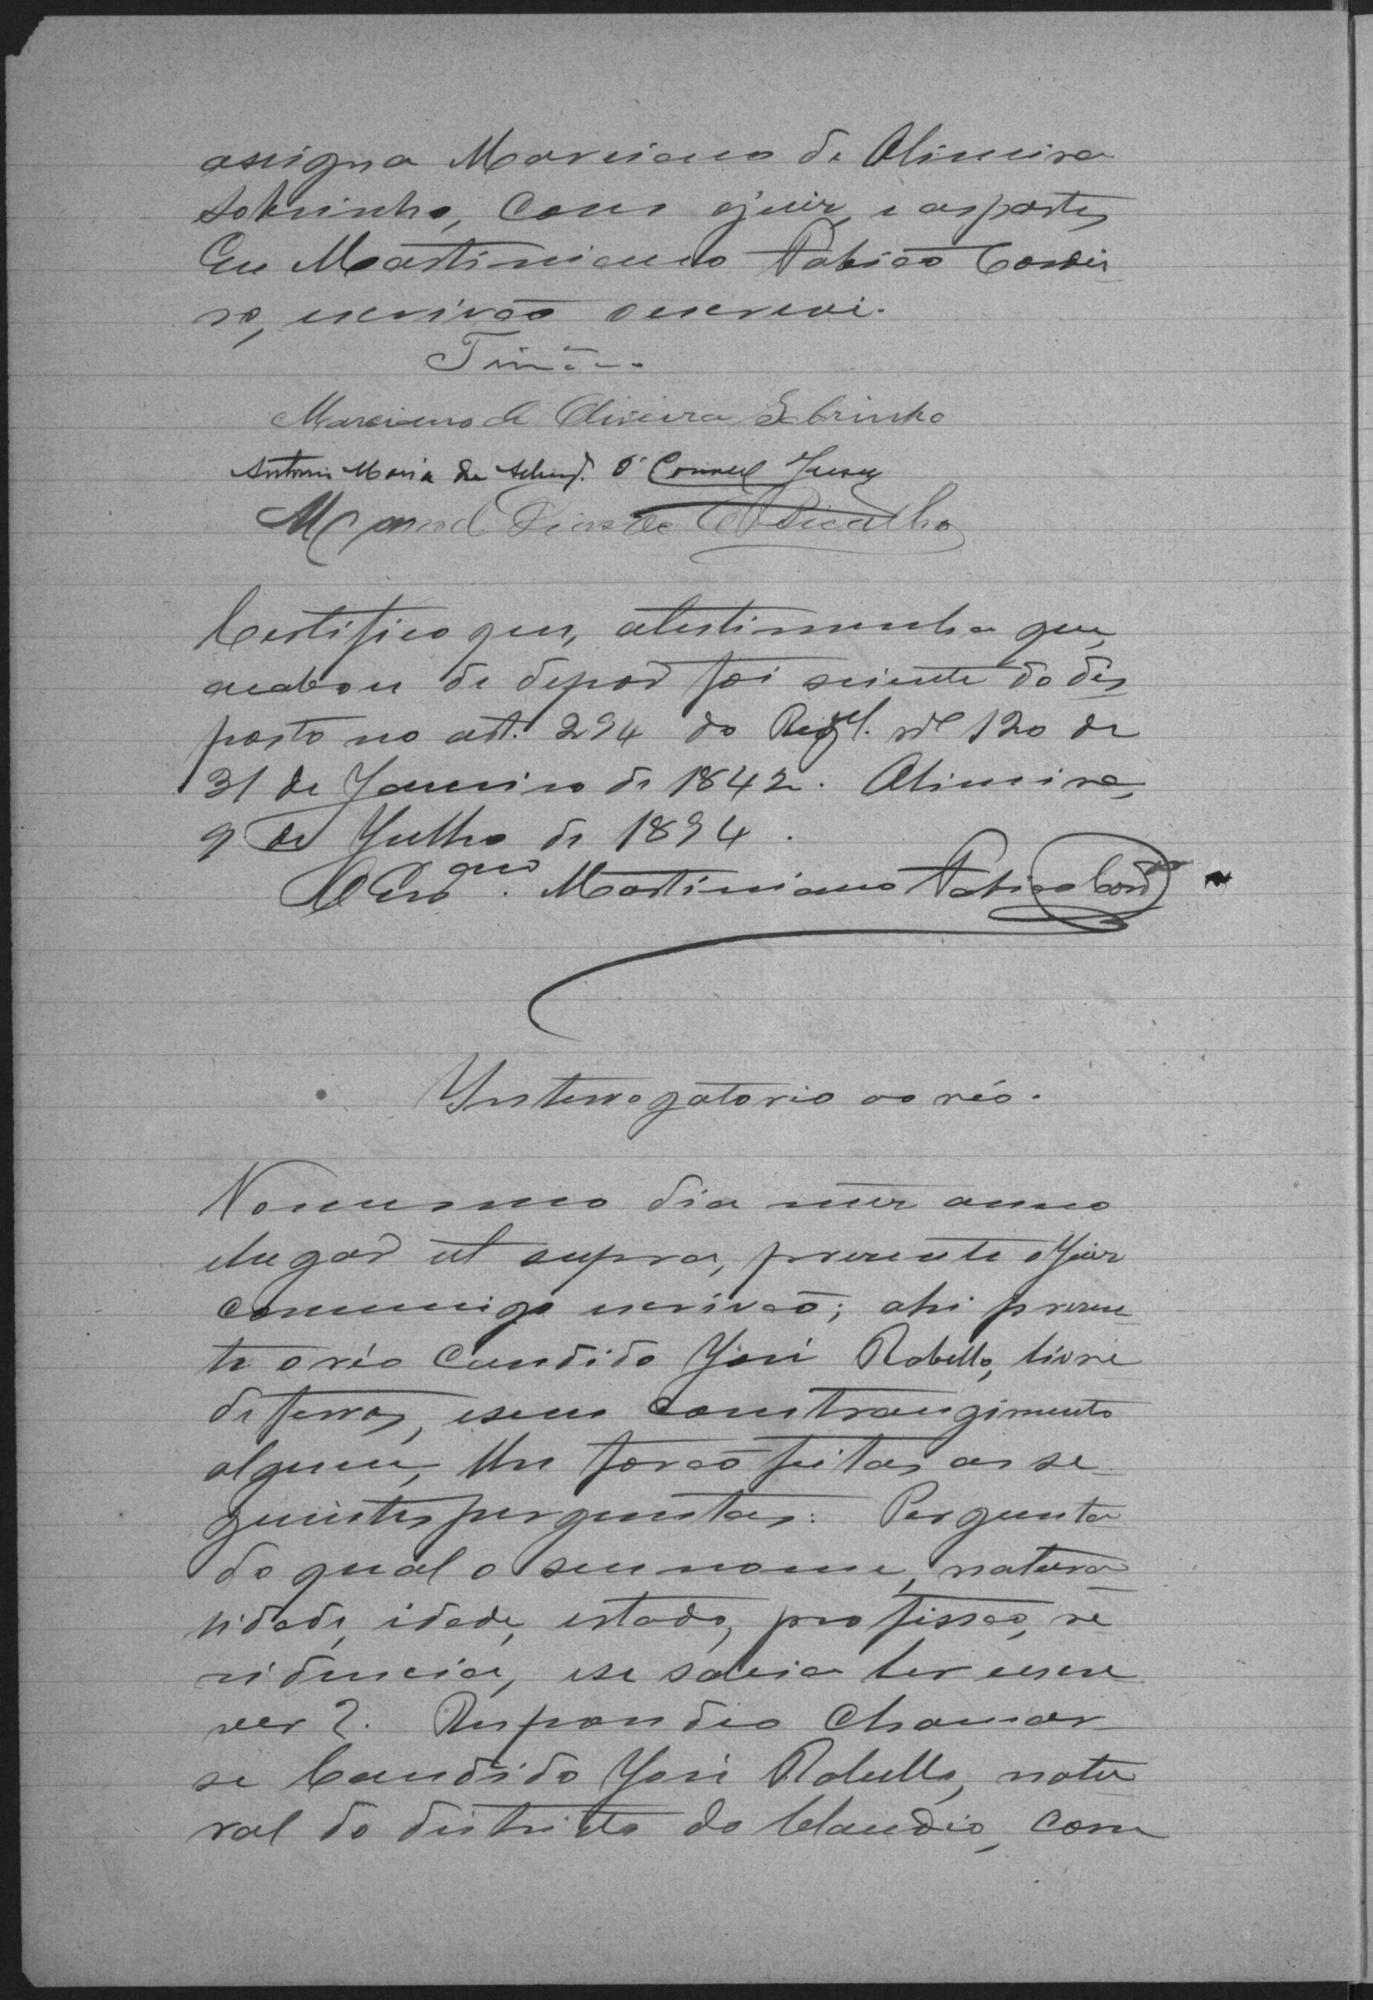 assigna Marciano de Oliveira
Sobrinho, com o juiz, e as partes,
Eu Martiniano Fabião Cordei-
ro, escrivão o escrevi.
Timõ
Marciano de Oliveira Sobrinho
Antonio Maria da O'Connel Jersey
Manoel Dias de Bicalho
Certifico que, a testimunha que,
acabou de depor foi sciente do dis
posto no art. 294 do Regl. nº 120 de
31 de Janeiro de 1842. Oliveira,
9 de Julho de 1894.
O Esc. Martiniano Fabião Cordº
Ynterrogatorio ao réo.
No mesmo dia mez anno
e lugar ut supra, presente o Juiz
commigo escrivão; ahi presen
te o réo Candido José Rabello, livre
de ferros, e sem constrangimento
algum, lhe forão feitas as se-
guintes perguntas: Pergunta
do qual o seu nome, natura
lidade, idade, estado, profissão, re
sidencia, e se sabia ler e escre
ver?. Respondeo chamar-
se Candido José Rabello, natu
ral do districto do Claudio, com